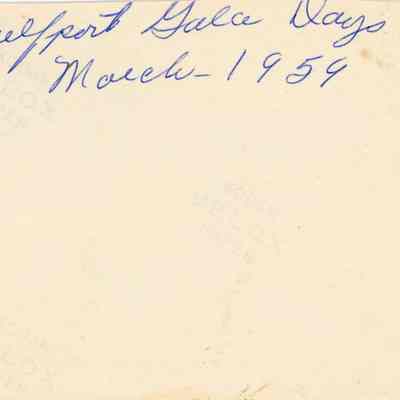 ulfport Gala Days
March - 1959